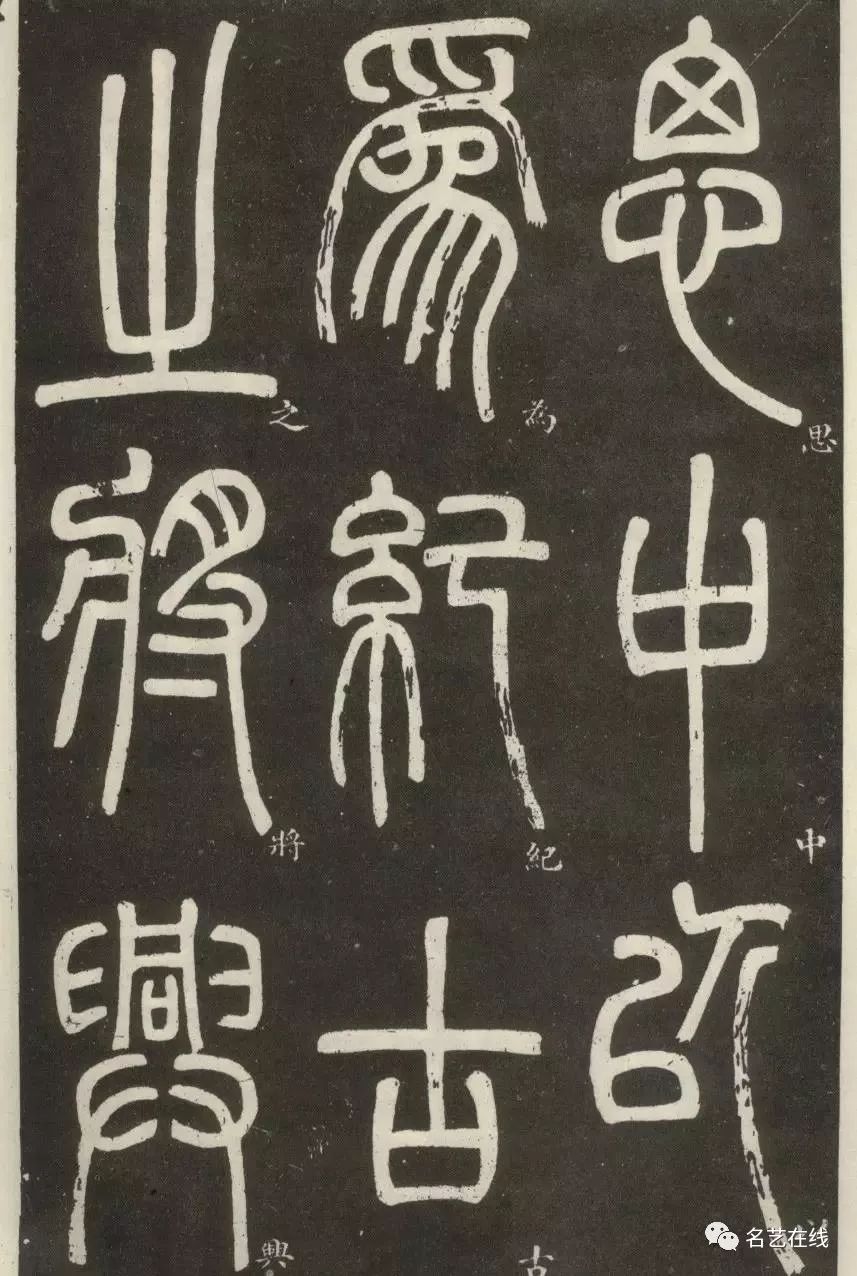 思中以
思中
為紀古
為紀古
之將興
之將興
名艺在线